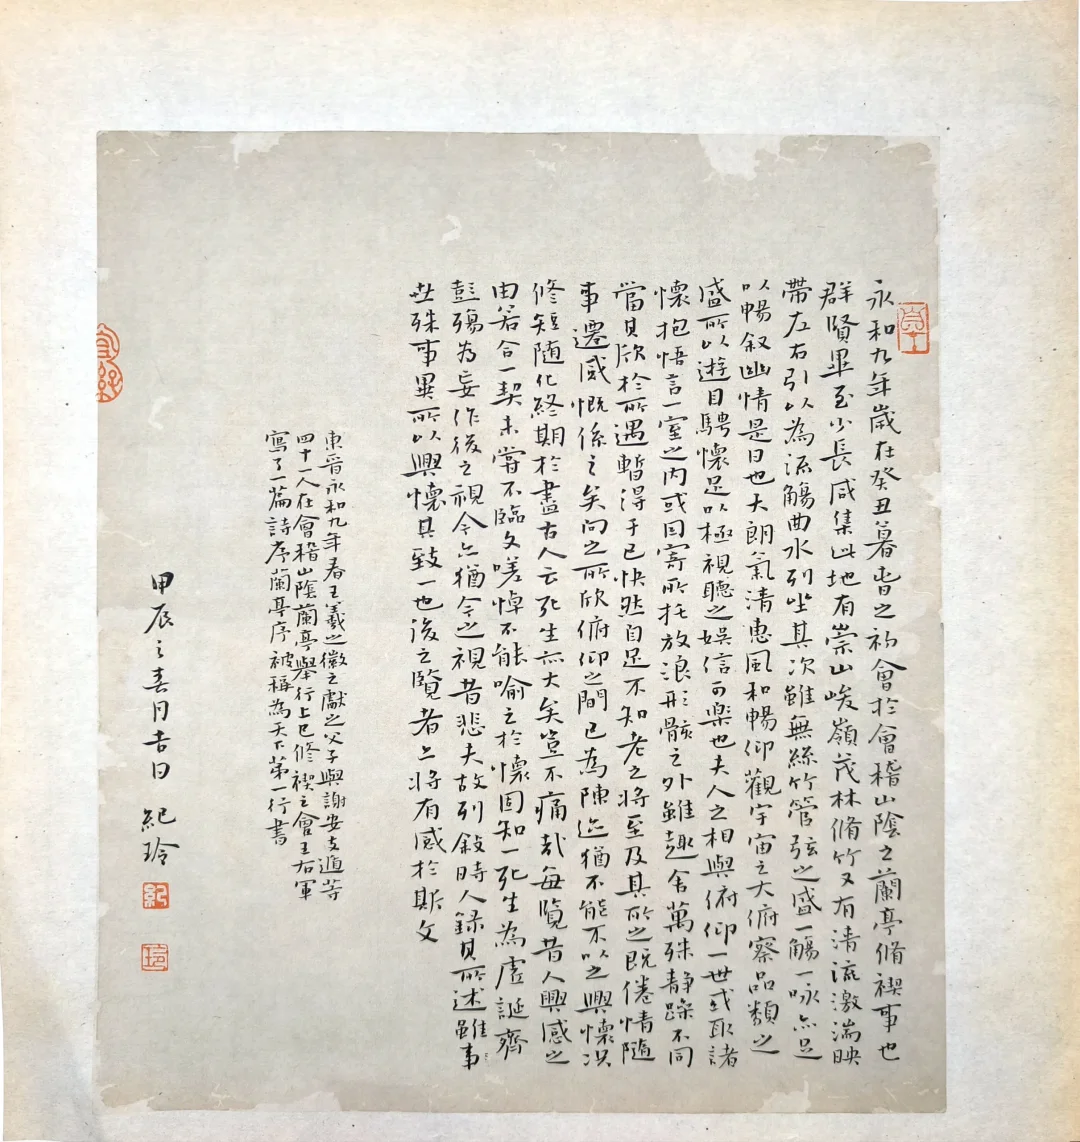 永和九年歲在癸丑暮春之初會於會稽山陰之蘭亭脩禊事也
群賢畢至少長咸集此地有崇山峻嶺茂林脩竹又有清流激湍映
帶左右引以為流觴曲水列坐其次雖無絲竹管弦之盛一觴一咏亦足
以暢叙幽情是日也天朗氣清惠風和暢仰觀宇宙之大俯察品類之
盛所以遊目騁懷足以極視聽之娛信可樂也夫人之相與俯仰一世或取諸
懷抱悟言一室之內或因寄所托放浪形骸之外雖趣舍萬殊靜躁不同
當其欣於所遇暫得于己快然自足不知老之將至及其所之既倦情隨
事遷感慨係之矣向之所欣俯仰之間已為陳迹猶不能不以之興懷況
修短隨化終期於盡古人云死生亦大矣豈不痛哉每覽昔人興感之
由若合一契未嘗不臨文嗟悼不能喻之於懷固知一死生為虛誕齊
彭殤為妄作後之視今亦猶今之視昔悲夫故列敘時人錄其所述雖事
世殊事異所以興懷其致一也後之覽者亦將有感於斯文
東晉永和九年春王羲之徽之獻之父子與謝安支遁等
四十一人在會稽山陰蘭亭舉行上巳修禊之會王右軍
寫了一篇詩序蘭亭序被稱為天下第一行書
甲辰之春月吉日 紀玲
紀
玲